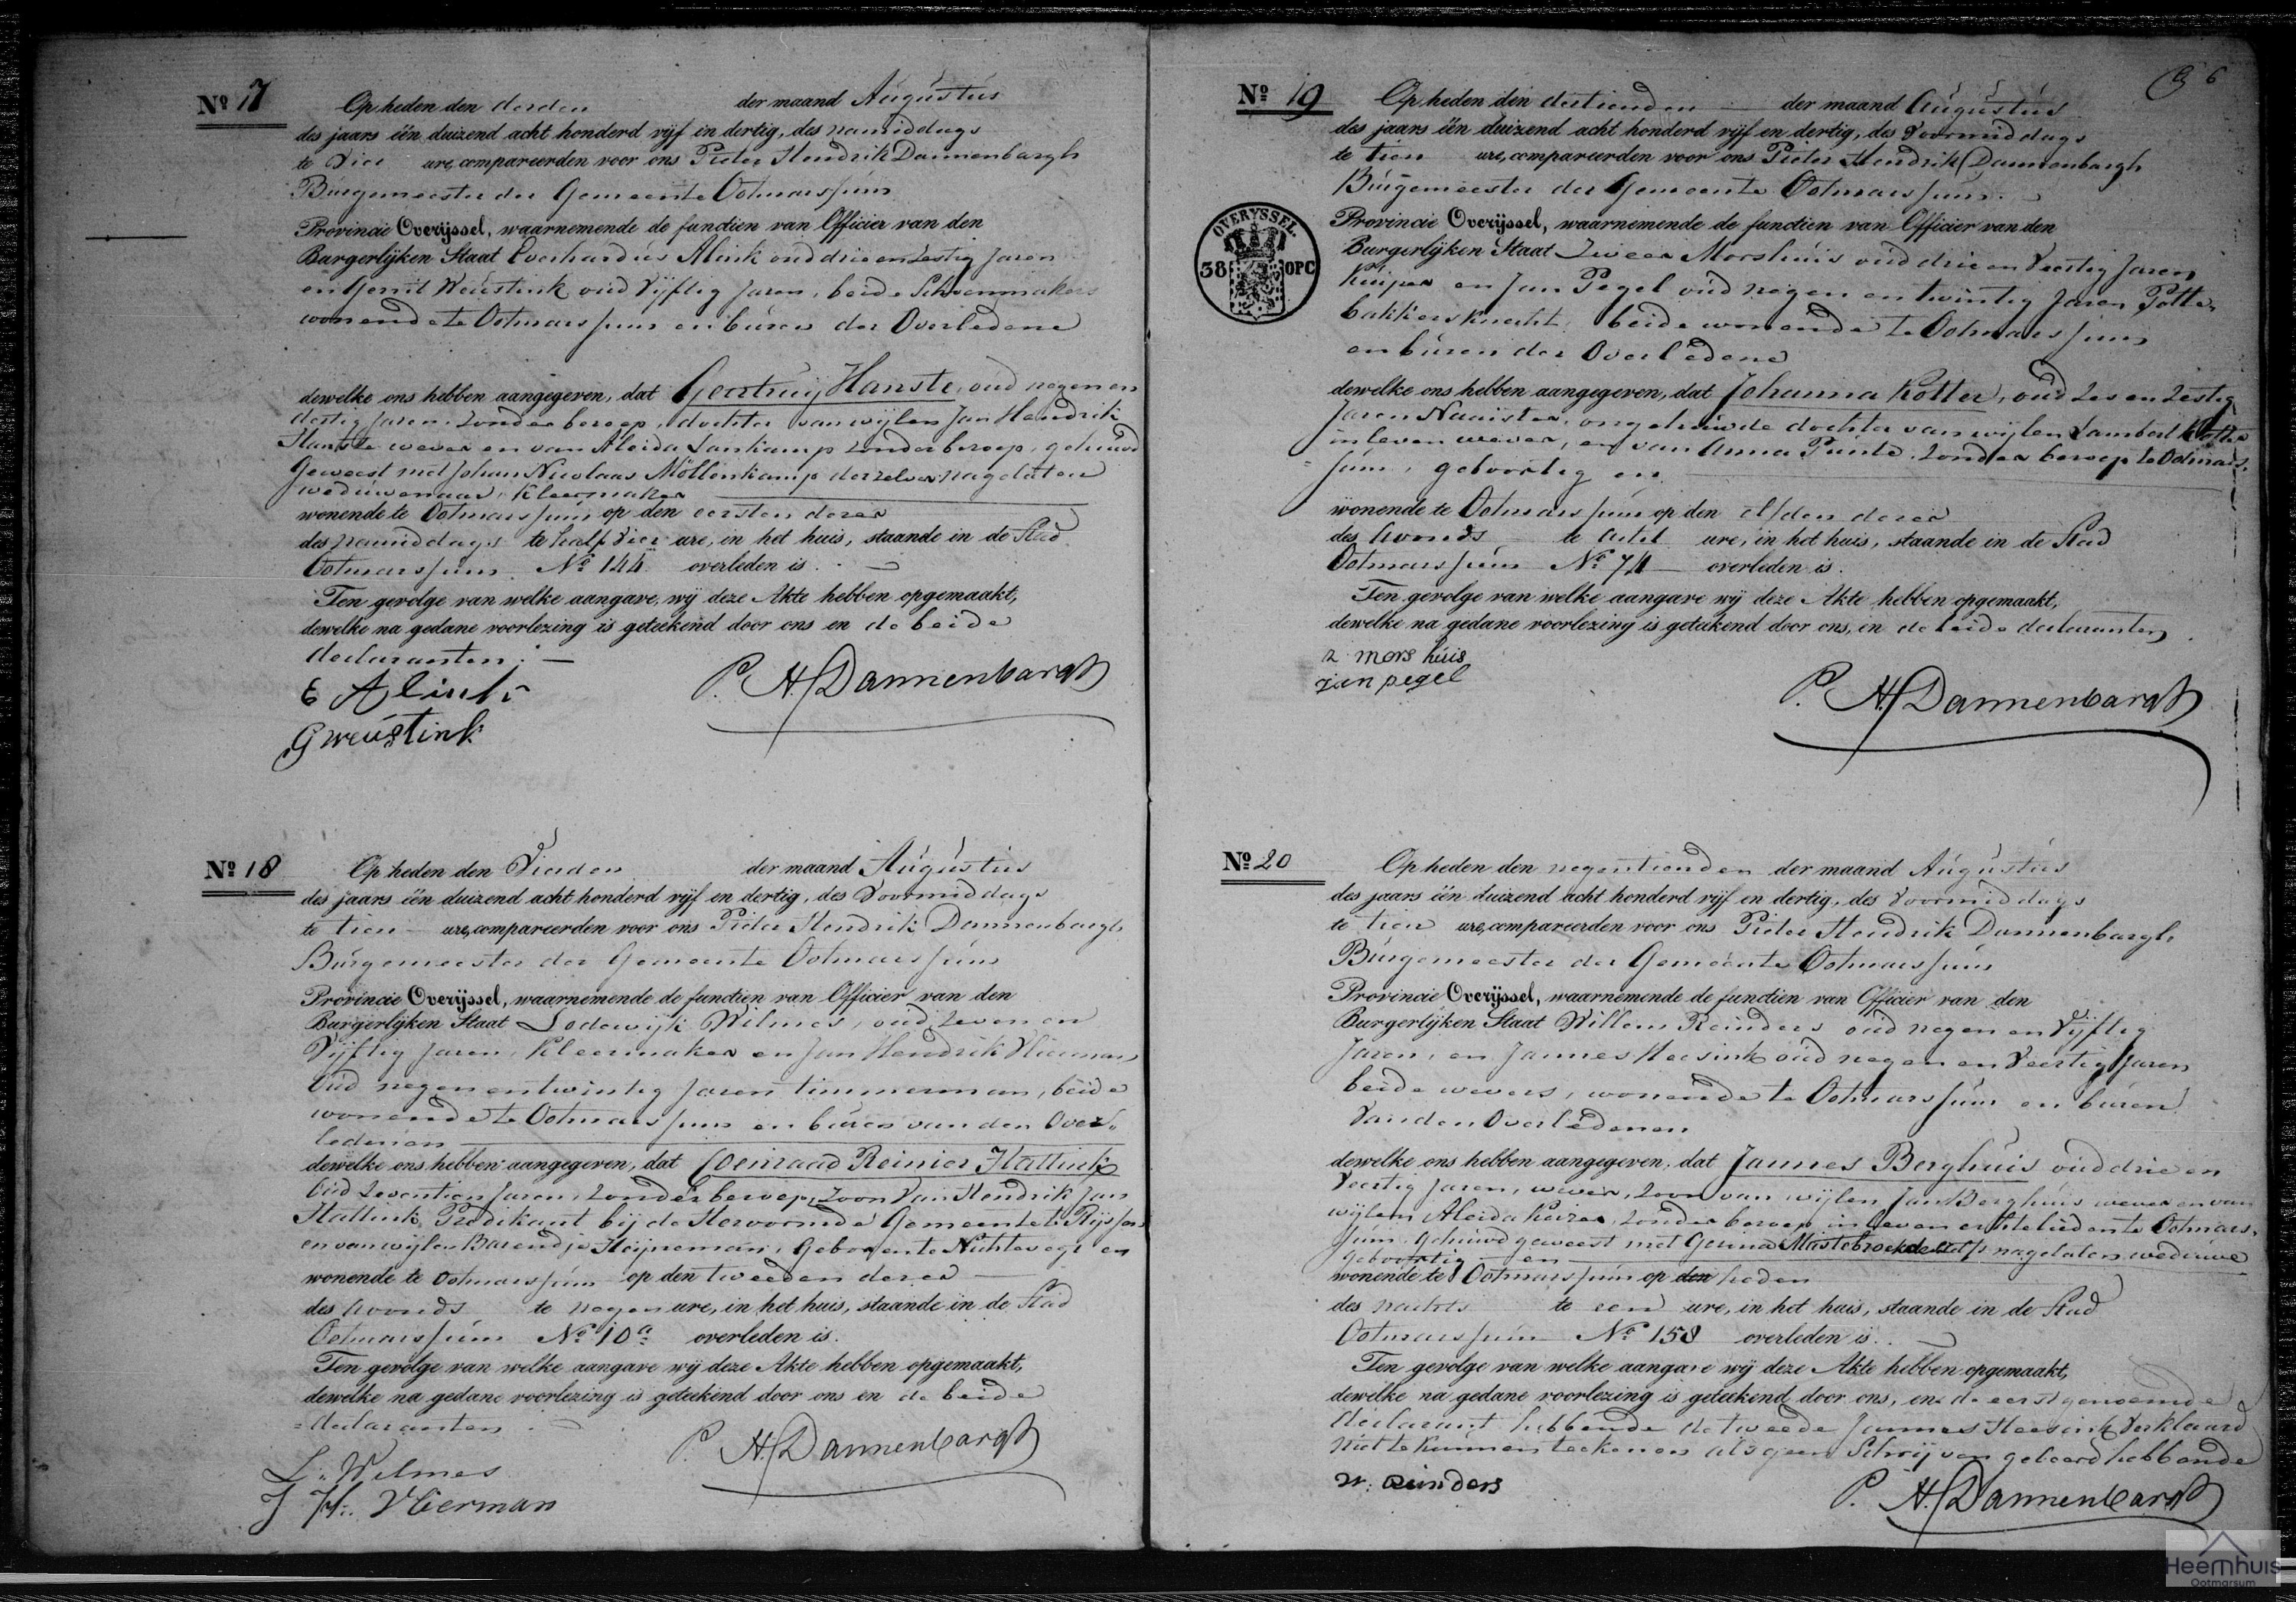 Nº 17
Op heden den derden der maand Augustus
des jaars één duizend acht honderd vijf en dertig, des namiddags
te vier ure, compareerden voor ons Pieter Hendrik Dannenbargh
Burgemeester der Gemeente Ootmarssum
Provincie Overijssel, waarnemende de functien van Officier van den
Burgerlijken Staat Everhardus Alink oud drie en Zestig Jaren
en Gerrit Weustink oud Vijftig Jaren, beide Schoenmakers
wonende te Ootmarssum en buren der Overledene
dewelke ons hebben aangegeven, dat Geertruij Hanste, oud negen en
dertig Jaren, zonder beroep, dochter van wijlen Jan Hendrik
Hanste wever en van Aleida Lankamp zonder beroep, gehuwd
Geweest met Johan Nicolaas Möllenkamp derzelver nagelaten
weduwenaar, Kleermaker
wonende te Ootmarssum op den eersten dezer
des namiddags te half vier ure, in het huis, staande in de Stad
Ootmarssum Nº 144 overleden is.
Ten gevolge van welke aangave, wij deze Akte hebben opgemaakt,
dewelke na gedane voorlezing is geteekend door ons en de beide
declaranten.
E Alink
P. H. Dannenbargh
G weustink
Nº 18
Op heden den Vierden der maand Augustus
des jaars één duizend acht honderd vijf en dertig, des Voormiddags
te tien ure, compareerden voor ons Pieter Hendrik Dannenbargh
Burgemeester der Gemeente Ootmarssum
Provincie Overijssel, waarnemende de functien van Officier van den
Burgerlijken Staat Lodewijk Wilmes, oud Zeven en
Vijftig Jaren, Kleermaker en Jan Hendrik
Oud negen en twintig Jaren timmerman, beide
wonende te Ootmarssum en buren van den Over-
ledenen
dewelke ons hebben aangegeven, dat Coenraad Reinier Hattink
Oud Zeventien Jaren, Zonder beroep, Zoon Van Hendrik Jan
Hattink, Predikant bij de Hervormde Gemeente te Rijssen
en van wijlen Barendje Heijneman, Geboren te Nichtevegt en
wonende te Ootmarssum op den tweeden dezer
des avonds te negen ure, in het huis, staande in de Stad
Ootmarssum Nº 10a overleden is.
Ten gevolge van welke aangave wij deze Akte hebben opgemaakt,
dewelke na gedane voorlezing is geteekend door ons en de beide
declaranten.
L. Wilmes
P. H. Dannenbargh
J H.
6
Nº 19
Op heden den dertienden der maand Augustus
des jaars één duizend acht honderd vijf en dertig, des Voormiddags
te tien ure, compareerden voor ons Pieter Hendrik Dannenbargh
Burgemeester der Gemeente Ootmarssum.
OVERYSSEL.
38 OPC
Provincie Overijssel, waarnemende de functien van Officier van den
Burgerlijken Staat Zweer Morshuis oud drie en Veertig Jaren
Kuiper en Jan Pegel oud negen en twintig Jaren Potte-
bakkers knecht, beide wonende te Ootmarssum
en buren der Overledene
dewelke ons hebben aangegeven, dat Johanna Kotter, oud Zes en Zestig
Jaren Naaister, ongehuwde dochter van wijlen Lambert Kotter
in leven wever, en van Anna Punte, Zonder beroep te Ootmars-
sum, geboortig en
wonende te Ootmarssum op den elfden dezer
des avonds te acht ure, in het huis, staande in de Stad
Ootmarssum Nº 74 overleden is.
Ten gevolge van welke aangave wij deze Akte hebben opgemaakt,
dewelke na gedane voorlezing is geteekend door ons, en de beide declaranten.
z mors huis
jan pegel
P. H. Dannenbargh
Nº 20
Op heden den negentienden der maand Augustus
des jaars één duizend acht honderd vijf en dertig, des Voormiddags
te tien ure, compareerden voor ons Pieter Hendrik Dannenbargh
Burgemeester der Gemeente Ootmarssum
Provincie Overijssel, waarnemende de functien van Officier van den
Burgerlijken Staat Willem Reinders oud negen en Vijftig
Jaren, en Jannes Heesink oud negen en Veertig Jaren
beide wevers, wonende te Ootmarssum en buren
Van den Overledenen
dewelke ons hebben aangegeven, dat Jannes Berghuis oud drie en
Veertig Jaren, wever, Zoon van wijlen Jan Berghuis wever en van
wijlen Aleida Keizer, Zonder beroep, in leven echtelieden te Ootmars-
sum, Gehuwd geweest met Gerina Mastebroek nagelaten weduwe
geboortig en
wonende te Ootmarssum op den heden
des nachts te een ure, in het huis, staande in de Stad
Ootmarssum Nº 158 overleden is.
Ten gevolge van welke aangave wij deze Akte hebben opgemaakt,
dewelke na gedane voorlezing is geteekend door ons, en de eerstgenoemde
declarant hebbende de tweede Jannes Heesink Verklaard
niet te kunnen teekenen als geen Schrijven geleerd hebbende
W. Reinders
P. H. Dannenbargh
Heemhuis
Ootmarsum